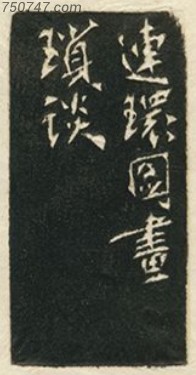 750747.com
連環圖畫
瑣談